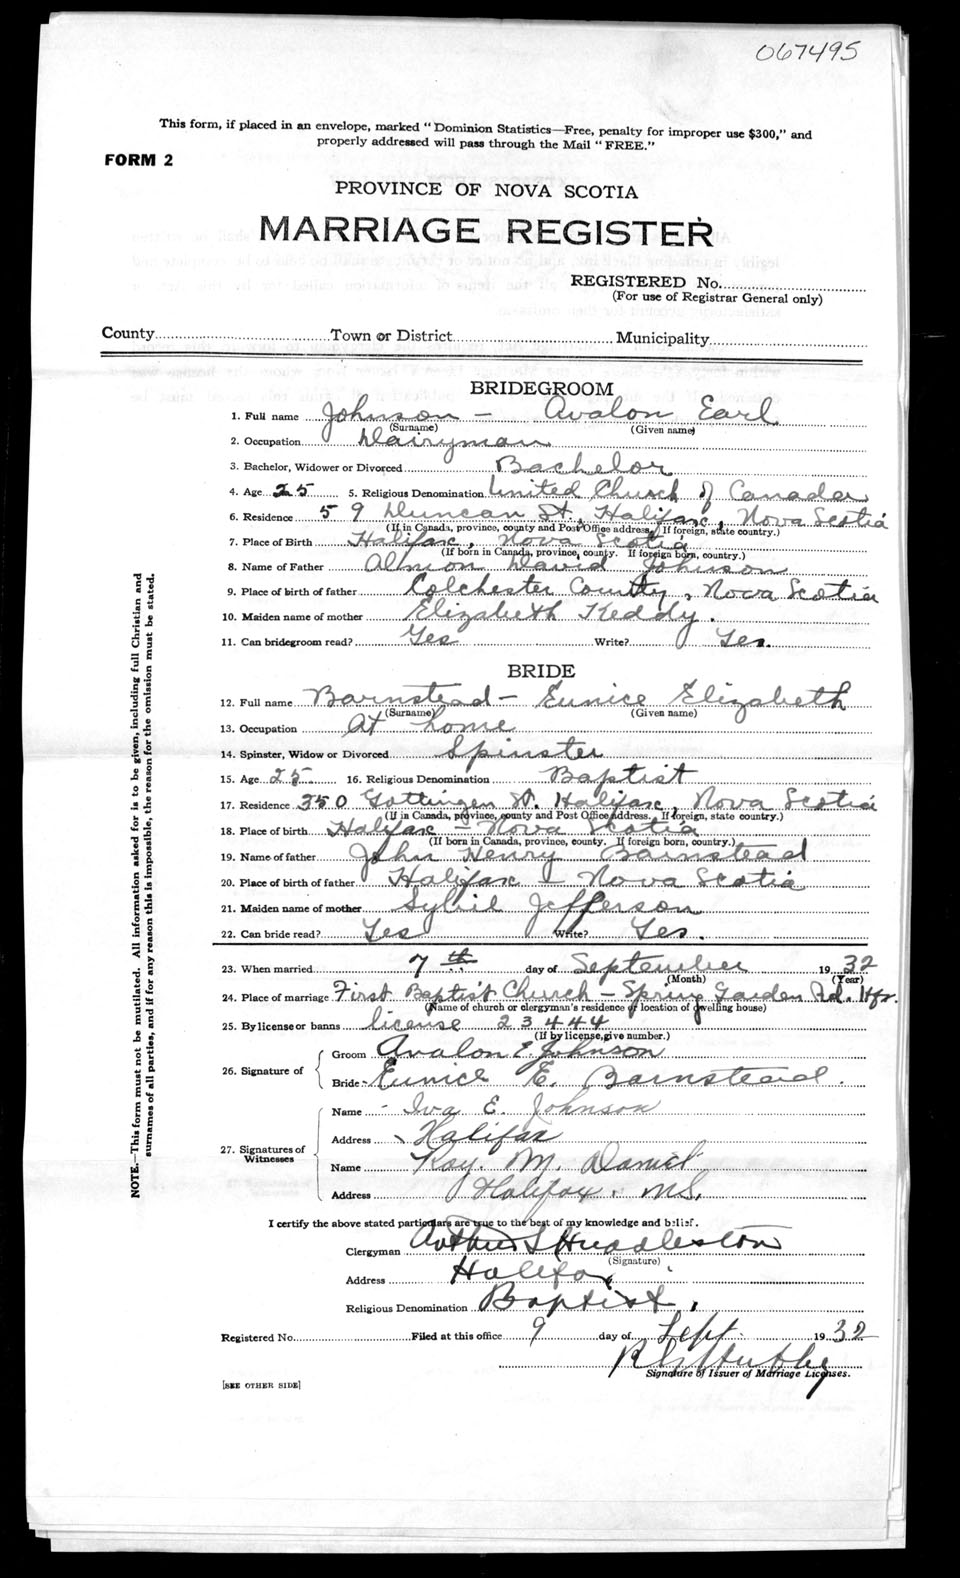 067495
This form, if placed in an envelope, marked "Dominion Statistics—Free, penalty for improper use $300," and
properly addressed will pass through the Mail "FREE."
FORM 2
PROVINCE OF NOVA SCOTIA
MARRIAGE REGISTER
REGISTERED No.
(For use of Registrar General only)
County Town or District Municipality
BRIDEGROOM
1. Full name Johnson - Avalon Earl
(Surname) (Given name)
2. Occupation Dairyman
3. Bachelor, Widower or Divorced Bachelor
4. Age 25 5. Religious Denomination United Church of Canada
6. Residence 59 Duncan St. Halifax, Nova Scotia
(If in Canada, province, county and Post Office address. If foreign, state country.)
7. Place of Birth Halifax, Nova Scotia
(If born in Canada, province, county. If foreign born, country.)
8. Name of Father Almon David Johnson
9. Place of birth of father Colchester County, Nova Scotia
10. Maiden name of mother Elizabeth Keddy.
11. Can bridegroom read? Yes Write? Yes.
BRIDE
12. Full name Barnstead - Eunice Elizabeth
(Surname) (Given name)
13. Occupation At home
14. Spinster, Widow or Divorced Spinster
15. Age 25 16. Religious Denomination Baptist
17. Residence 350 Gottingen St. Halifax, Nova Scotia
(If in Canada, province, county and Post Office Address. If foreign, state country.)
18. Place of birth Halifax - Nova Scotia
(If born in Canada, province, county. If foreign born, country.)
19. Name of father John Henry Barnstead
20. Place of birth of father Halifax - Nova Scotia
21. Maiden name of mother Sylvie Jefferson
22. Can bride read? Yes Write? Yes.
23. When married 7th day of September 1932
(Month) (Year)
24. Place of marriage First Baptist Church - Spring Garden Rd. Hfx.
(Name of church or clergyman's residence or location of dwelling house)
25. By license or banns license 23444
(If by license, give number.)
26. Signature of Groom Avalon E. Johnson
Bride Eunice E. Barnstead.
27. Signatures of Witnesses
Name Iva E. Johnson
Address Halifax
Name Ray. M. Daniel
Address Halifax. N.S.
I certify the above stated particulars are true to the best of my knowledge and belief.
Clergyman Arthur S Huddleston
(Signature)
Address Halifax
Religious Denomination Baptist.
Registered No. Filed at this office 9 day of Sept. 1932
Signature of Issuer of Marriage Licenses.
[SEE OTHER SIDE]
NOTE.—This form must not be mutilated. All information asked for is to be given, including full Christian and
surnames of all parties, and if for any reason this is impossible, the reason for the omission must be stated.